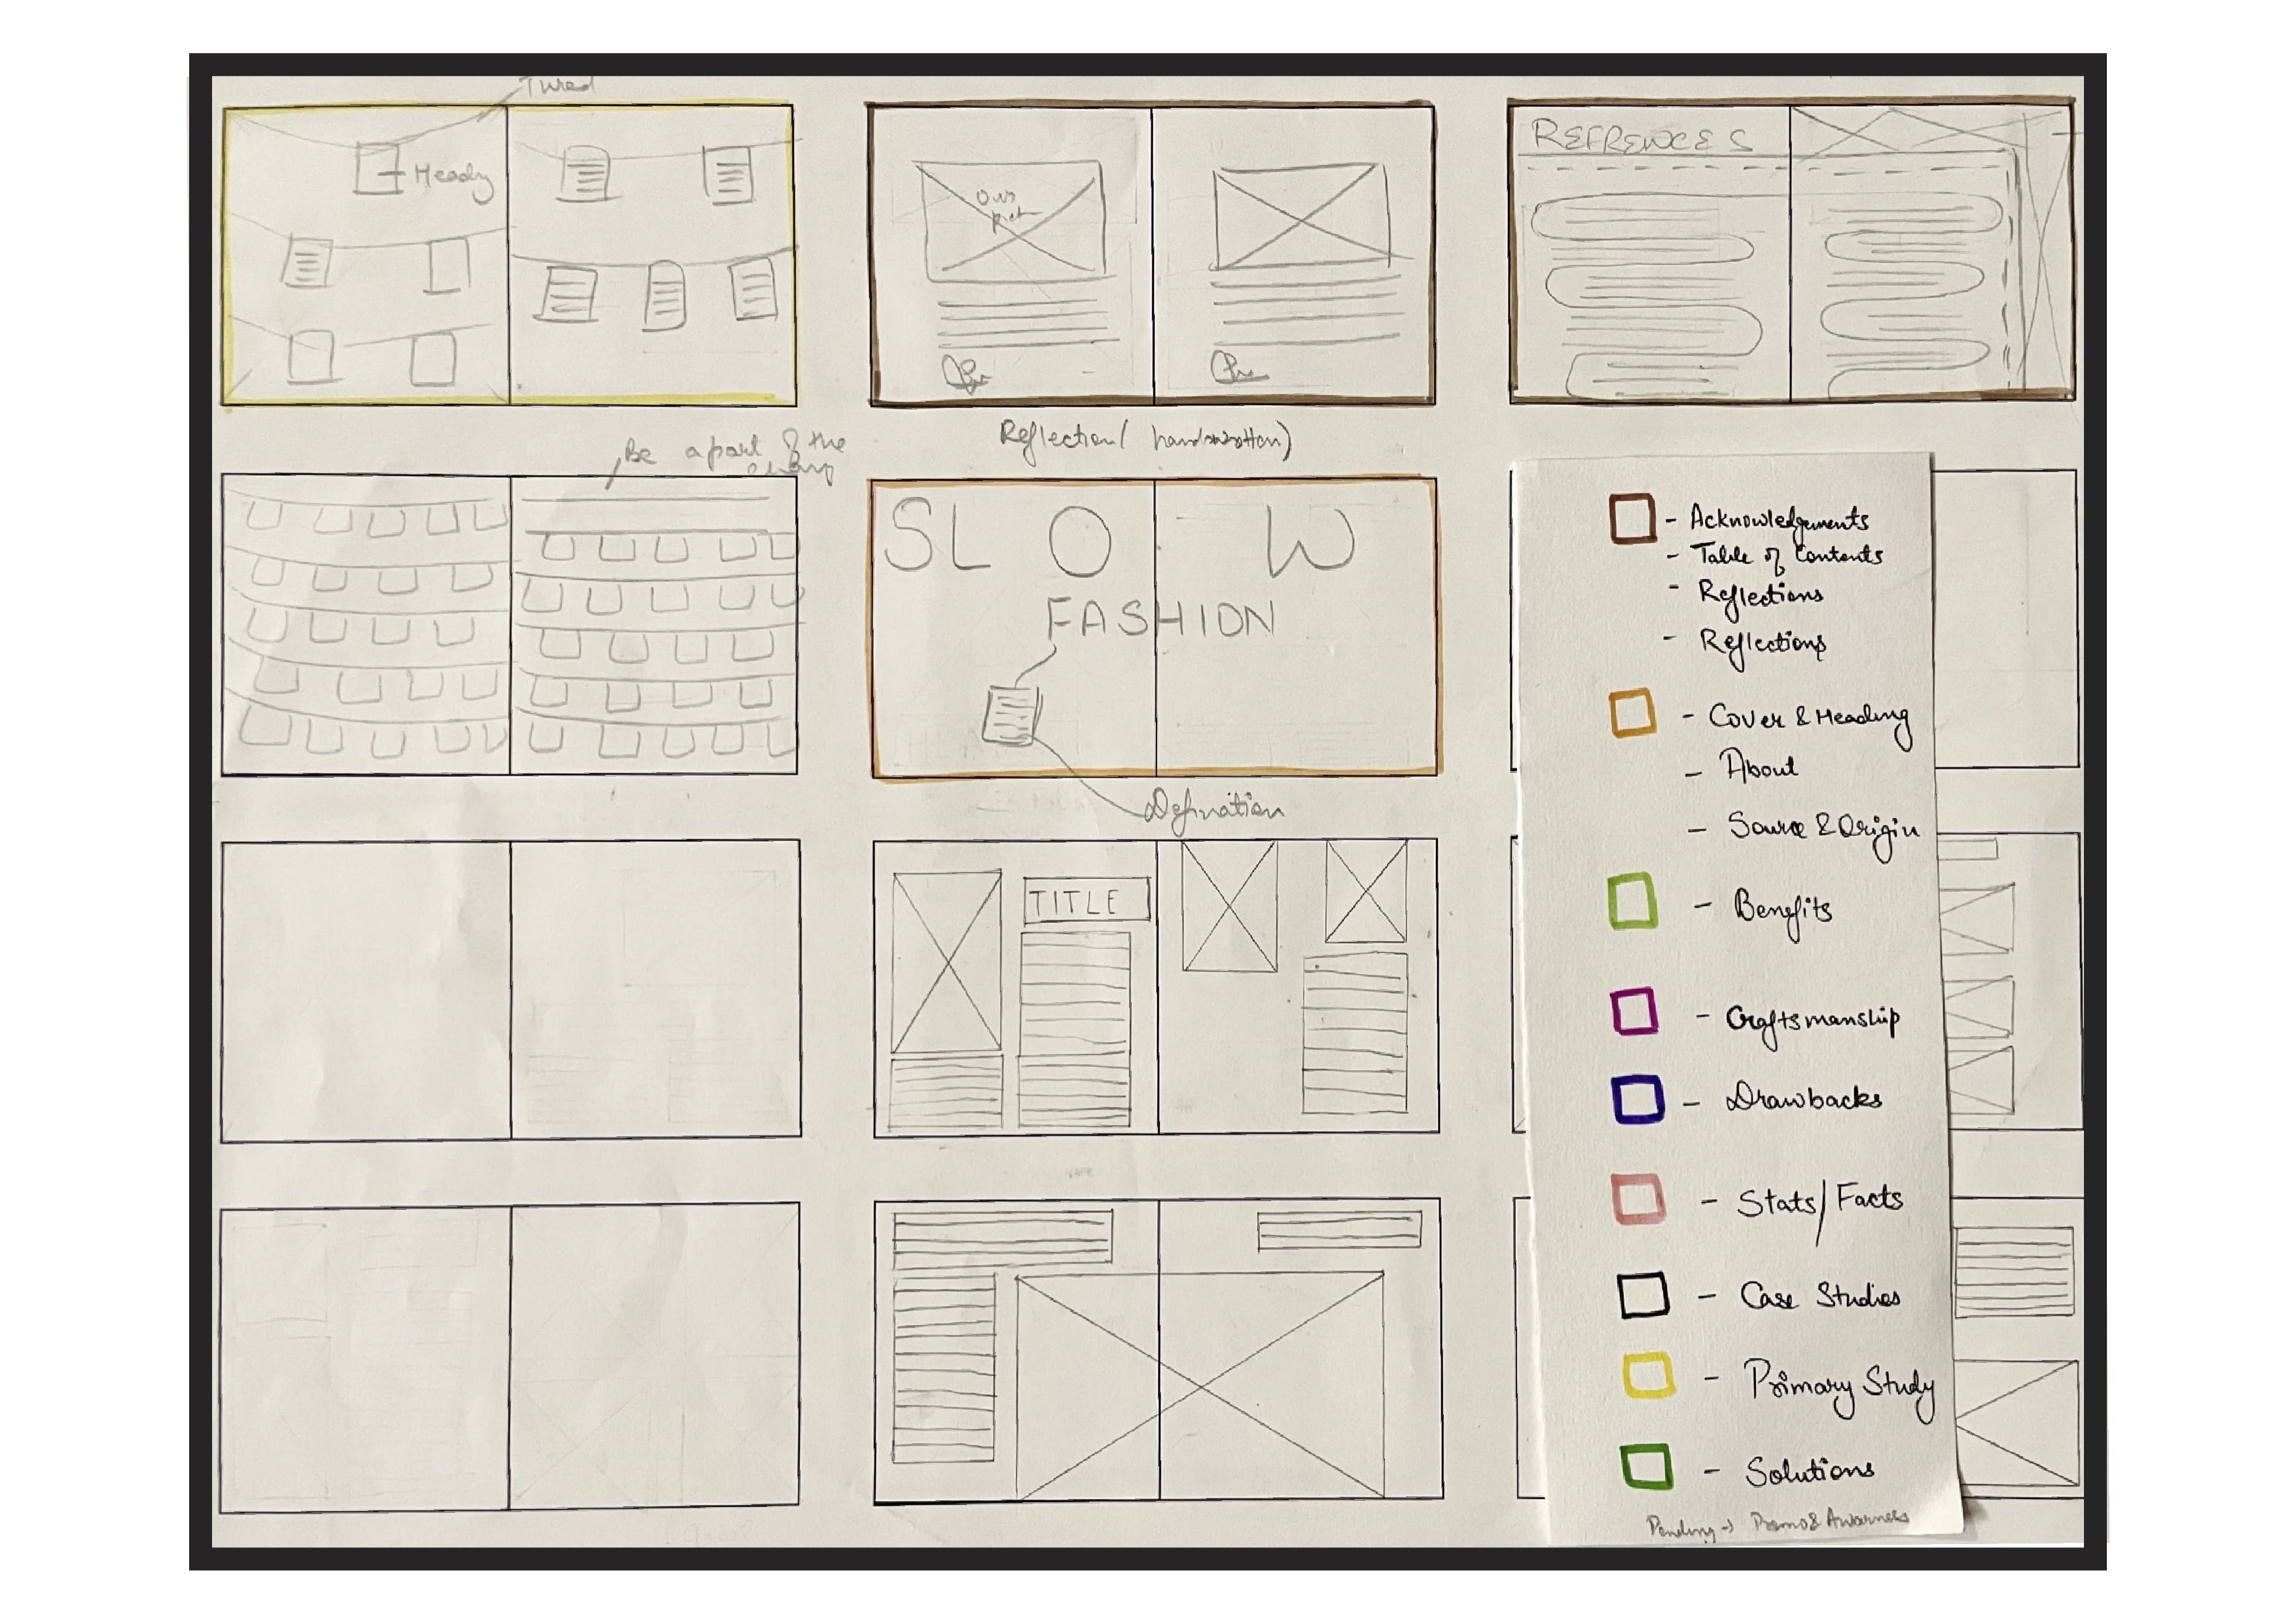 Thread
Heady
Our
REFRENCES
Be a part of the
Reflection( handwritten)
SL O W
FASHION
Defination
TITLE
- Acknowledgements
- Table of Contents
- Reflections
- Reflections
- Cover & Heading
- About
- Source & Origin
- Benefits
- Craftsmanship
- Drawbacks
- Stats/Facts
- Case Studies
- Primary Study
- Solutions
Pending → Promo & Awarness